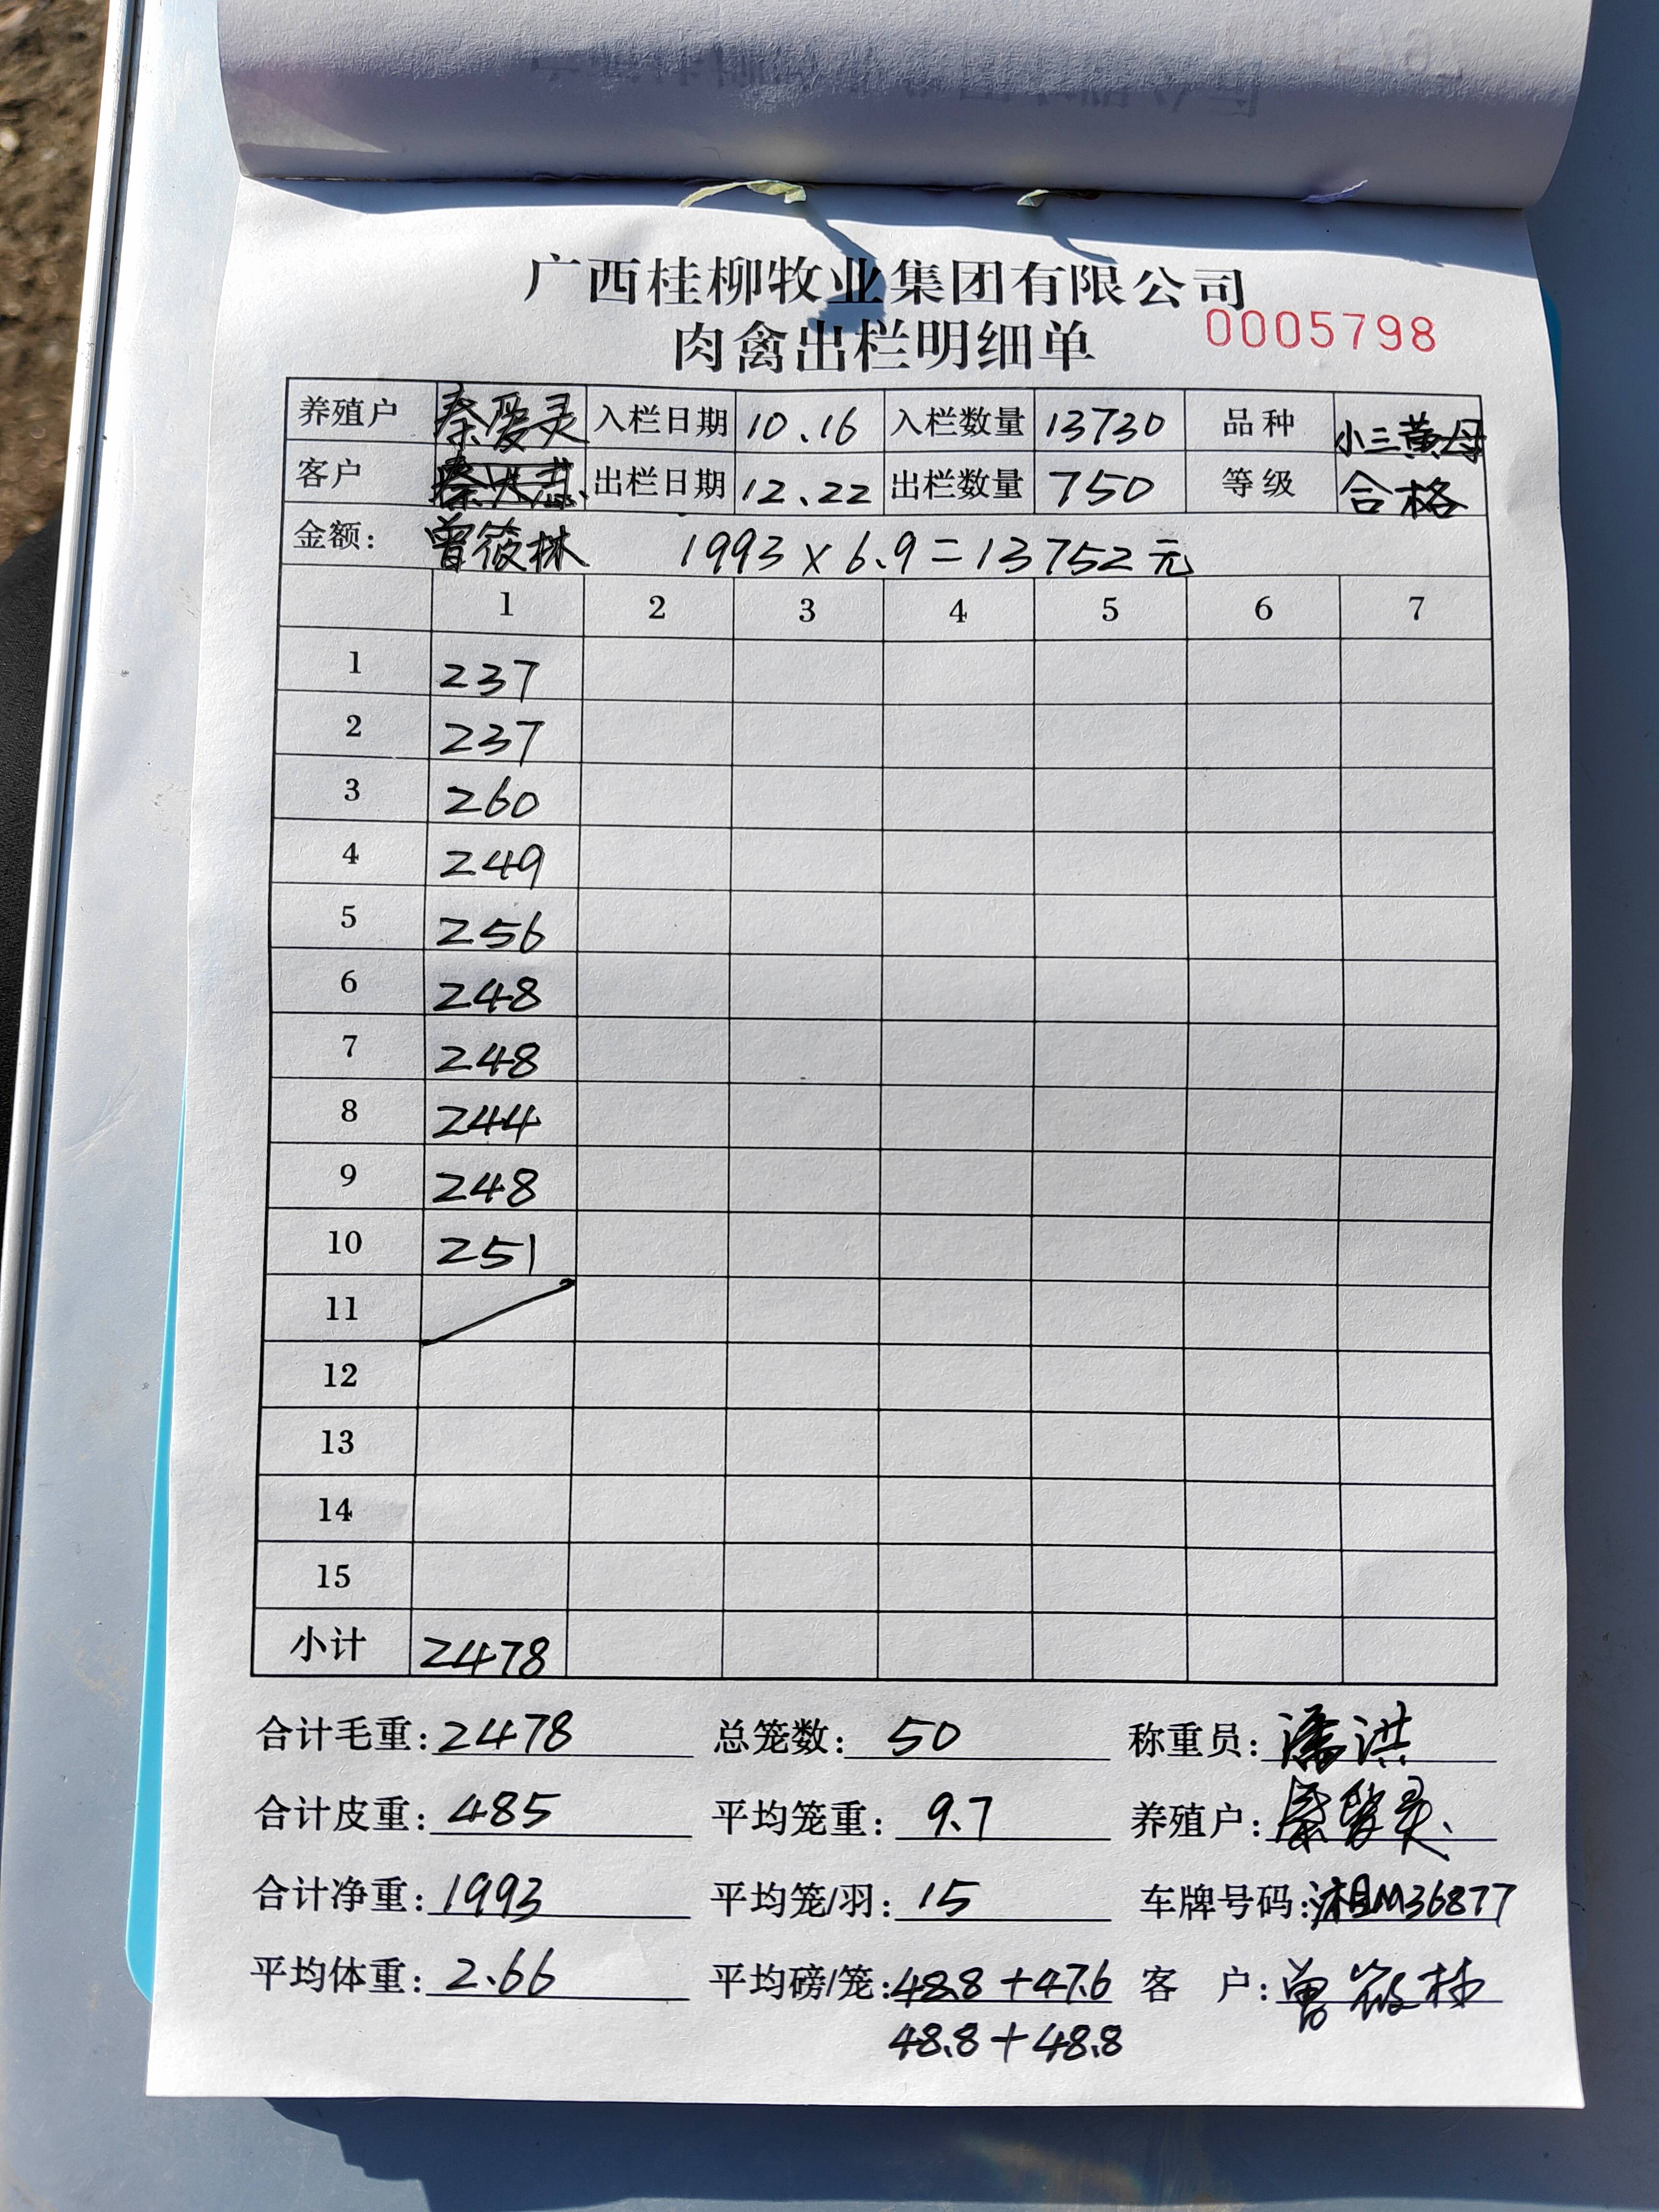 广西桂柳牧业集团有限公司
肉禽出栏明细单 0005798
养殖户 秦爱灵 入栏日期 10.16 入栏数量 13730 品种 小三黄母
客户 出栏日期 12.22 出栏数量 750 等级 合格
金额: 曾筱林 1993×6.9=13752元
1 2 3 4 5 6 7
1 237
2 237
3 260
4 249
5 256
6 248
7 248
8 244
9 248
10 251
11
12
13
14
15
小计 2478
合计毛重: 2478 总笼数: 50 称重员: 潘洪
合计皮重: 485 平均笼重: 9.7 养殖户: 秦爱灵
合计净重: 1993 平均笼/羽: 15 车牌号码: 湘M36877
平均体重: 2.66 平均磅/笼: 48.8+47.6 客 户: 曾筱林
48.8+48.8